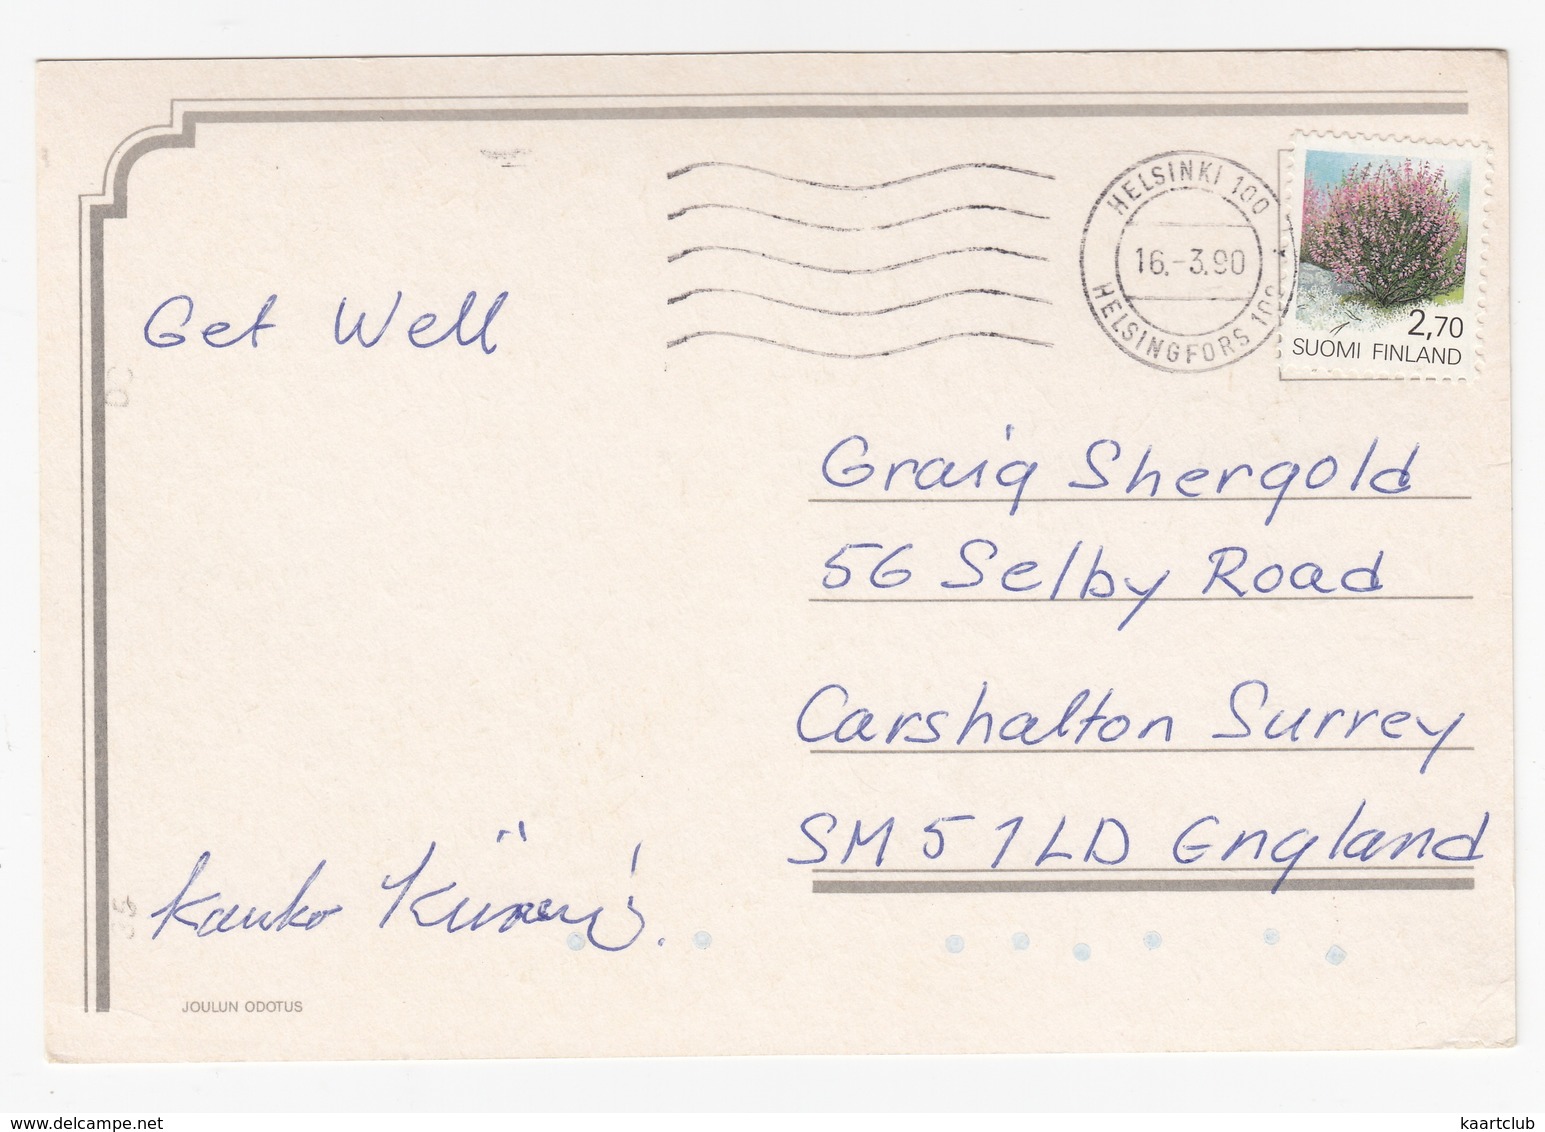 HELSINKI 100
16.-3.90
HELSINGFORS 100
2,70
SUOMI FINLAND
Get Well
Graig Shergold
56 Selby Road
Carshalton Surrey
SM5 1LD England
Kauko
JOULUN ODOTUS
www.delcampe.net
kaartclub